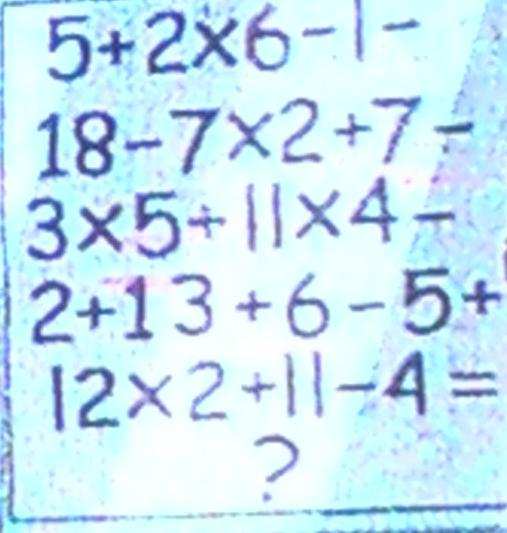 5+2×6-1-
18-7×2+7-
3×5+11×4-
2+13+6-5+
12×2+11-4=
?